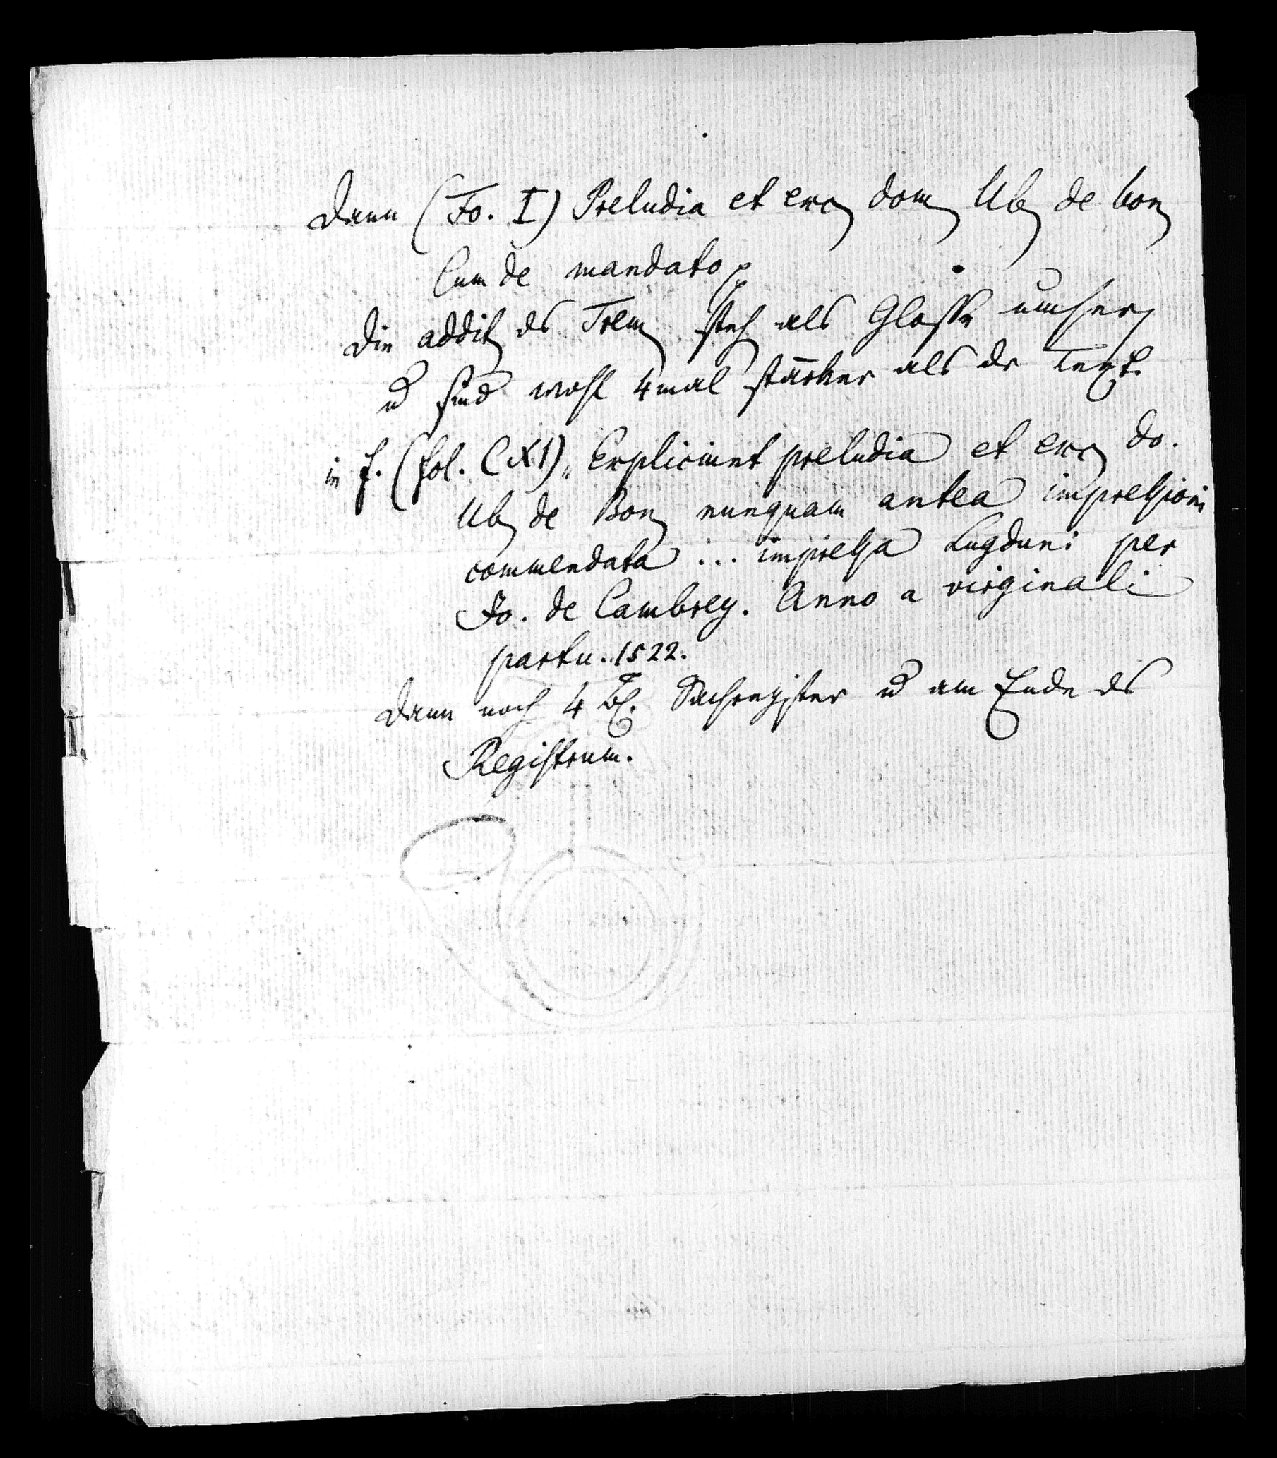 Dann (Fo. I) Preludia et exc dom Ub de bon
Cum de mandato
Die addit ds Trem steh als Glosse umher
u sind wohl 4mal stärker als dr Text.
in f. (fol. CXI) „Expliciunt preludia et exc do.
Ub de Bon nunquam antea impressioni
commendata ... impressa Lugduni per
Jo. de Cambrey. Anno a virginali
partu. 1522.
Dann noch 4 Bl. Sachregister u am Ende ds
Registrum.